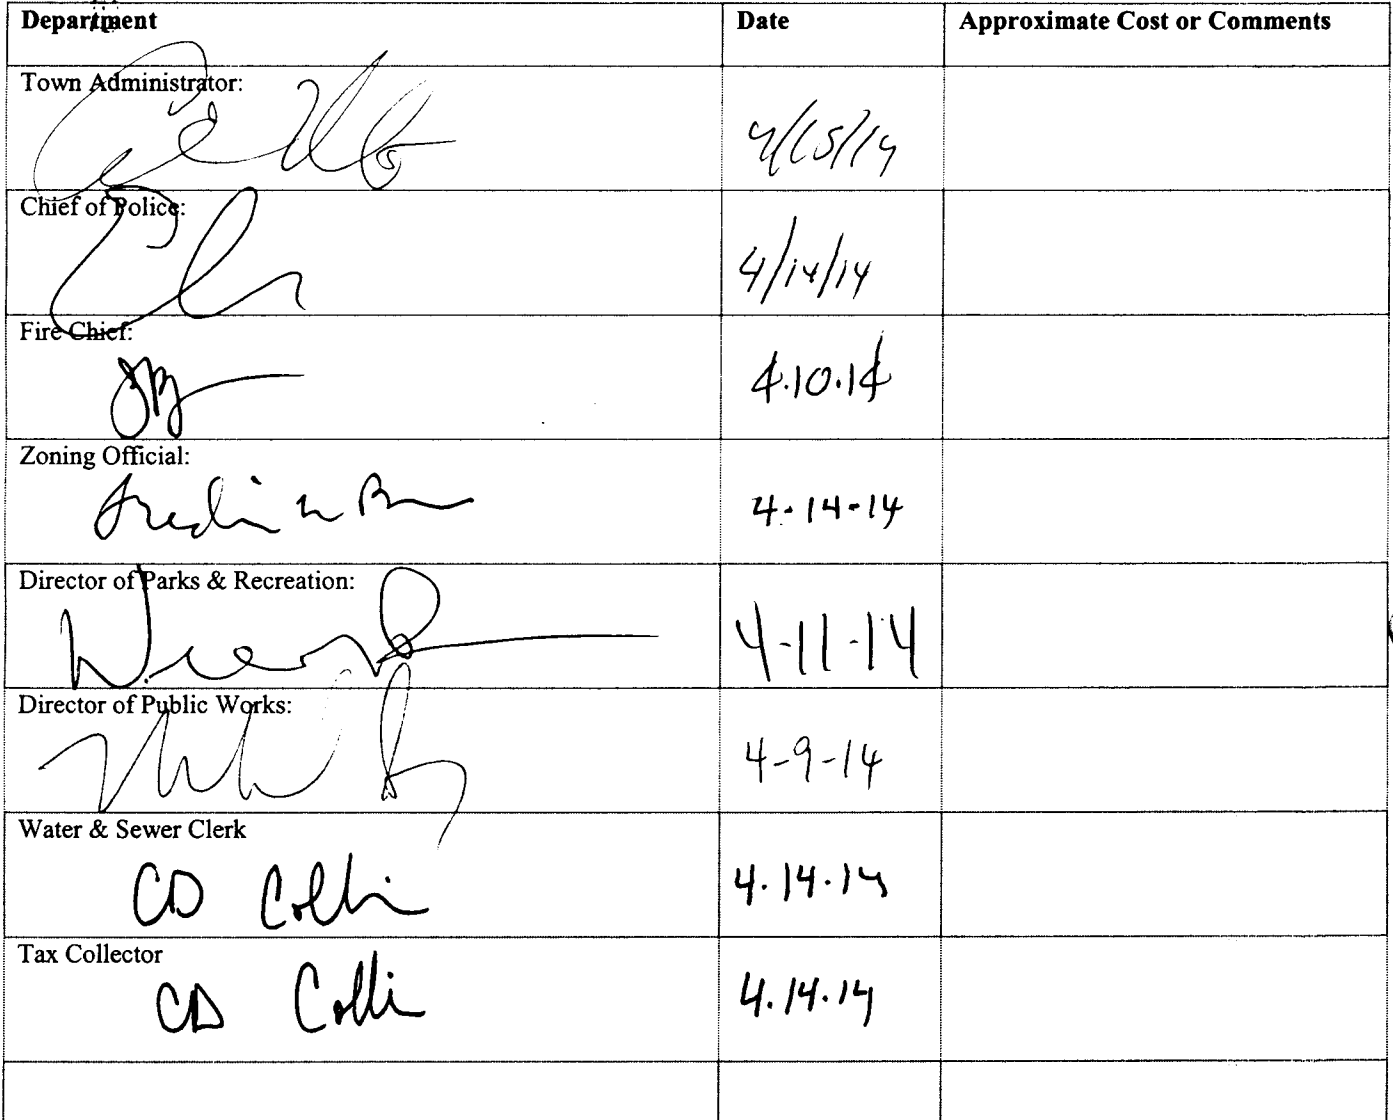 Department Date Approximate Cost or Comments
Town Administrator:
4/15/14
Chief of Police:
4/14/14
Fire Chief:
4.10.14
Zoning Official:
4-14-14
Director of Parks & Recreation:
4-11-14
Director of Public Works:
4-9-14
Water & Sewer Clerk
CD Collin 4.14.14
Tax Collector
CD Collin 4.14.14